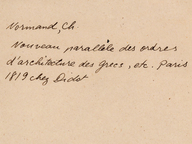 Normand, Ch.
Nouveau parallèle des ordres
d'architecture des Grecs, etc. Paris
1819 chez Didot